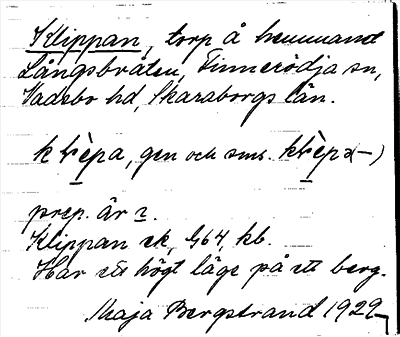 Klippan, torp å hemmanet
Långsbråten, Finnerödja sn,
Vadsbo hd, Skaraborgs län.
klèpa, gen och sms. klèpa-)
prep. är
Klippan ek, G64, kb.
Har ett högt läge på ett berg.
Maja Bergstrand 1929